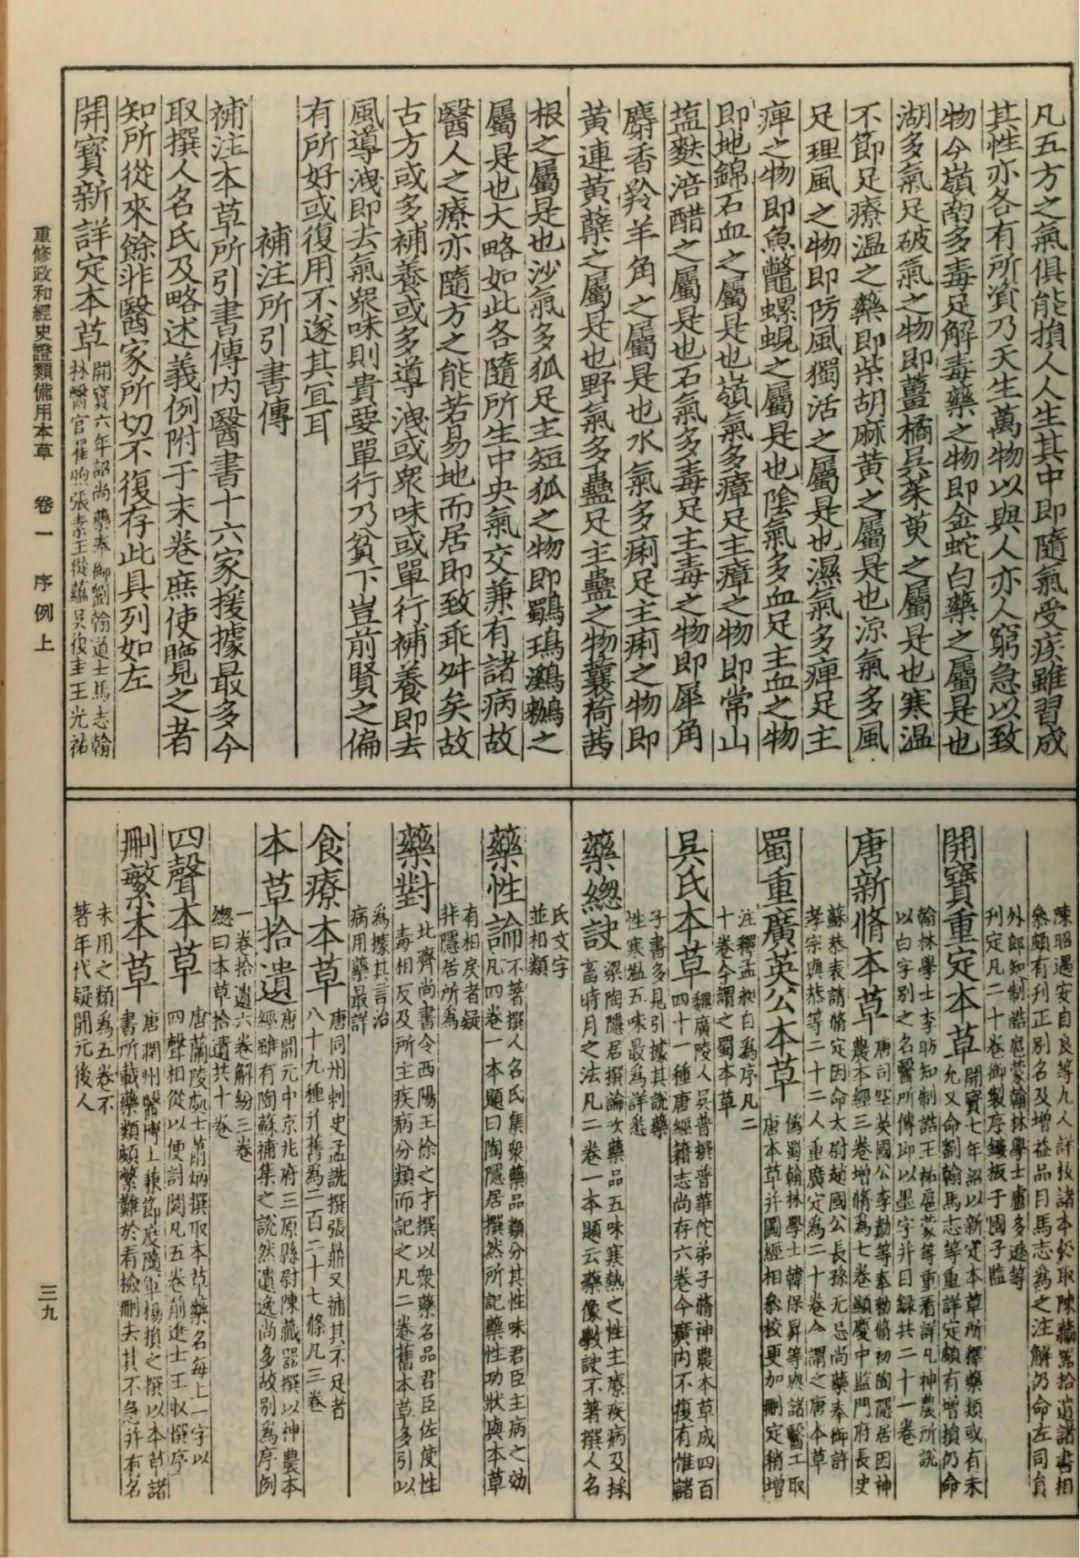 凡五方之氣俱能損人人生其中即隨氣受疾雖習成
其性亦各有所資乃天生萬物以與人亦人窮急以致
物今嶺南多毒足解毒藥之物即金蛇白藥之屬是也
湖多氣足破氣之物即薑橘吳茱萸之屬是也寒溫
不節足療溫之藥即柴胡麻黃之屬是也涼氣多風
足理風之物即防風獨活之屬是也濕氣多痺足主
痺之物即魚鼈螺蜆之屬是也陰氣多血足主血之物
即地錦石血之屬是也嶺氣多瘴足主瘴之物即常山
塩麩涪醋之屬是也石氣多毒足主毒之物即犀角
麝香羚羊角之屬是也水氣多痢足主痢之物即
黃連黃蘗之屬是也野氣多蠱足主蠱之物蘘荷茜
根之屬是也沙氣多狐足主短狐之物即鸀鳿鸂鶒之
屬是也大略如此各隨所生中央氣交兼有諸病故
醫人之療亦隨方之能若易地而居即致乖舛矣故
古方或多補養或多導洩或衆味或單行補養即去
風導洩即去氣衆味則貴要單行乃貧下豈前賢之偏
有所好或復用不遂其宜耳
補注所引書傳
補注本草所引書傳内醫書十六家援據最多今
取撰人名氏及略述義例附于末卷庶使覽之者
知所從來餘非醫家所切不復存此具列如左
開寶新詳定本草 開寶六年詔尚藥奉御劉翰道士馬志翰
林醫官崔煦張素王從蘊吳復圭王光祐
陳昭遇安自良等九人詳挍諸本仍取陳藏器拾遺諸書相
參頗有刊正別名及增益品目馬志為之注解仍命左司員
外郎知制誥扈蒙翰林學士盧多遜等
刊定凡二十卷御製序鏤板于國子監
開寶重定本草 開寶七年詔以新定本草所釋藥類或有未
允又命劉翰馬志等重詳定頗有增損仍命
翰林學士李昉知制誥王祐扈蒙等重看詳凡神農所說
以白字別之名醫所傳即以墨字并目録共二十一卷
唐新脩本草 唐司空英國公李勣等奉勑脩初陶隱居因神
農本經三卷增脩為七卷顯慶中監門府長史
蘇恭表請脩定因命太尉趙國公長孫无忌尚藥奉御許
孝宗與恭等二十二人重廣定為二十卷今謂之唐本草
蜀重廣英公本草 僞蜀翰林學士韓保昇等與諸醫工取
唐本草并圖經相參挍更加刪定稍增
注釋孟昶自為序凡二
十卷今謂之蜀本草
吳氏本草 魏廣陵人吳普撰普華佗弟子脩神農本草成四百
四十一種唐經籍志尚存六卷今廣内不復有惟諸
子書多見引據其說藥
性寒溫五味最為詳悉
藥緫訣 梁陶隱居撰論次藥品五味寒熱之性主療疾病及採
畜時月之法凡二卷一本題云藥像敩訣不著撰人名
氏文字
並相類
藥性論 不著撰人名氏集衆藥品類分其性味君臣主病之効
凡四卷一本題曰陶隱居撰然所記藥性功狀與本草
有相戾者疑
非隱居所為
藥對 北齊尚書令西陽王徐之才撰以衆藥名品君臣佐使性
毒相反及所主疾病分類而記之凡二卷舊本草多引以
為據其言治
病用藥最詳
食療本草 唐同州刺史孟詵撰張鼎又補其不足者
八十九種并舊為二百二十七條凡三卷
本草拾遺 唐開元中京兆府三原縣尉陳藏器撰以神農本
經雖有陶蘇補集之說然遺逸尚多故別為序例
一卷拾遺六卷解紛三卷
緫曰本草拾遺共十卷
四聲本草 唐蘭陵處士蕭炳撰取本草藥名每上一字以
四聲相從以便討閱凡五卷前進士王收撰序
刪繁本草 唐潤州醫博士兼節度隨軍楊損之撰以本草諸
書所載藥類頗繁難於看檢刪去其不急并有名
未用之類為五卷不
著年代疑開元後人
重修政和經史證類備用本草 卷一 序例上
三九